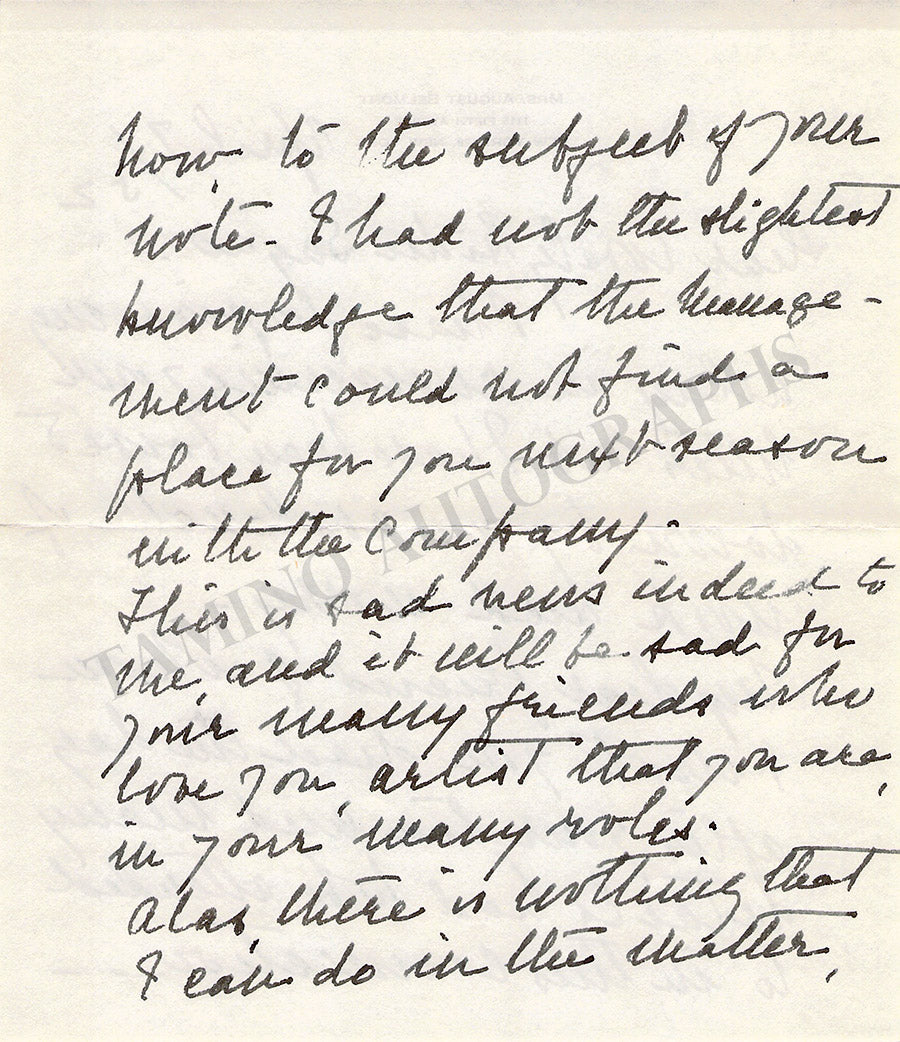 Now, to the subject of your
note - I had not the slightest
knowledge that the Manage-
ment could not find a
place for you next season
with the Company.
This is sad news indeed to
me, and it will be sad for
your many friends who
love you, artist that you are,
in your many roles.
Alas, there is nothing that
I can do in the matter,
TAMINO AUTOGRAPHS